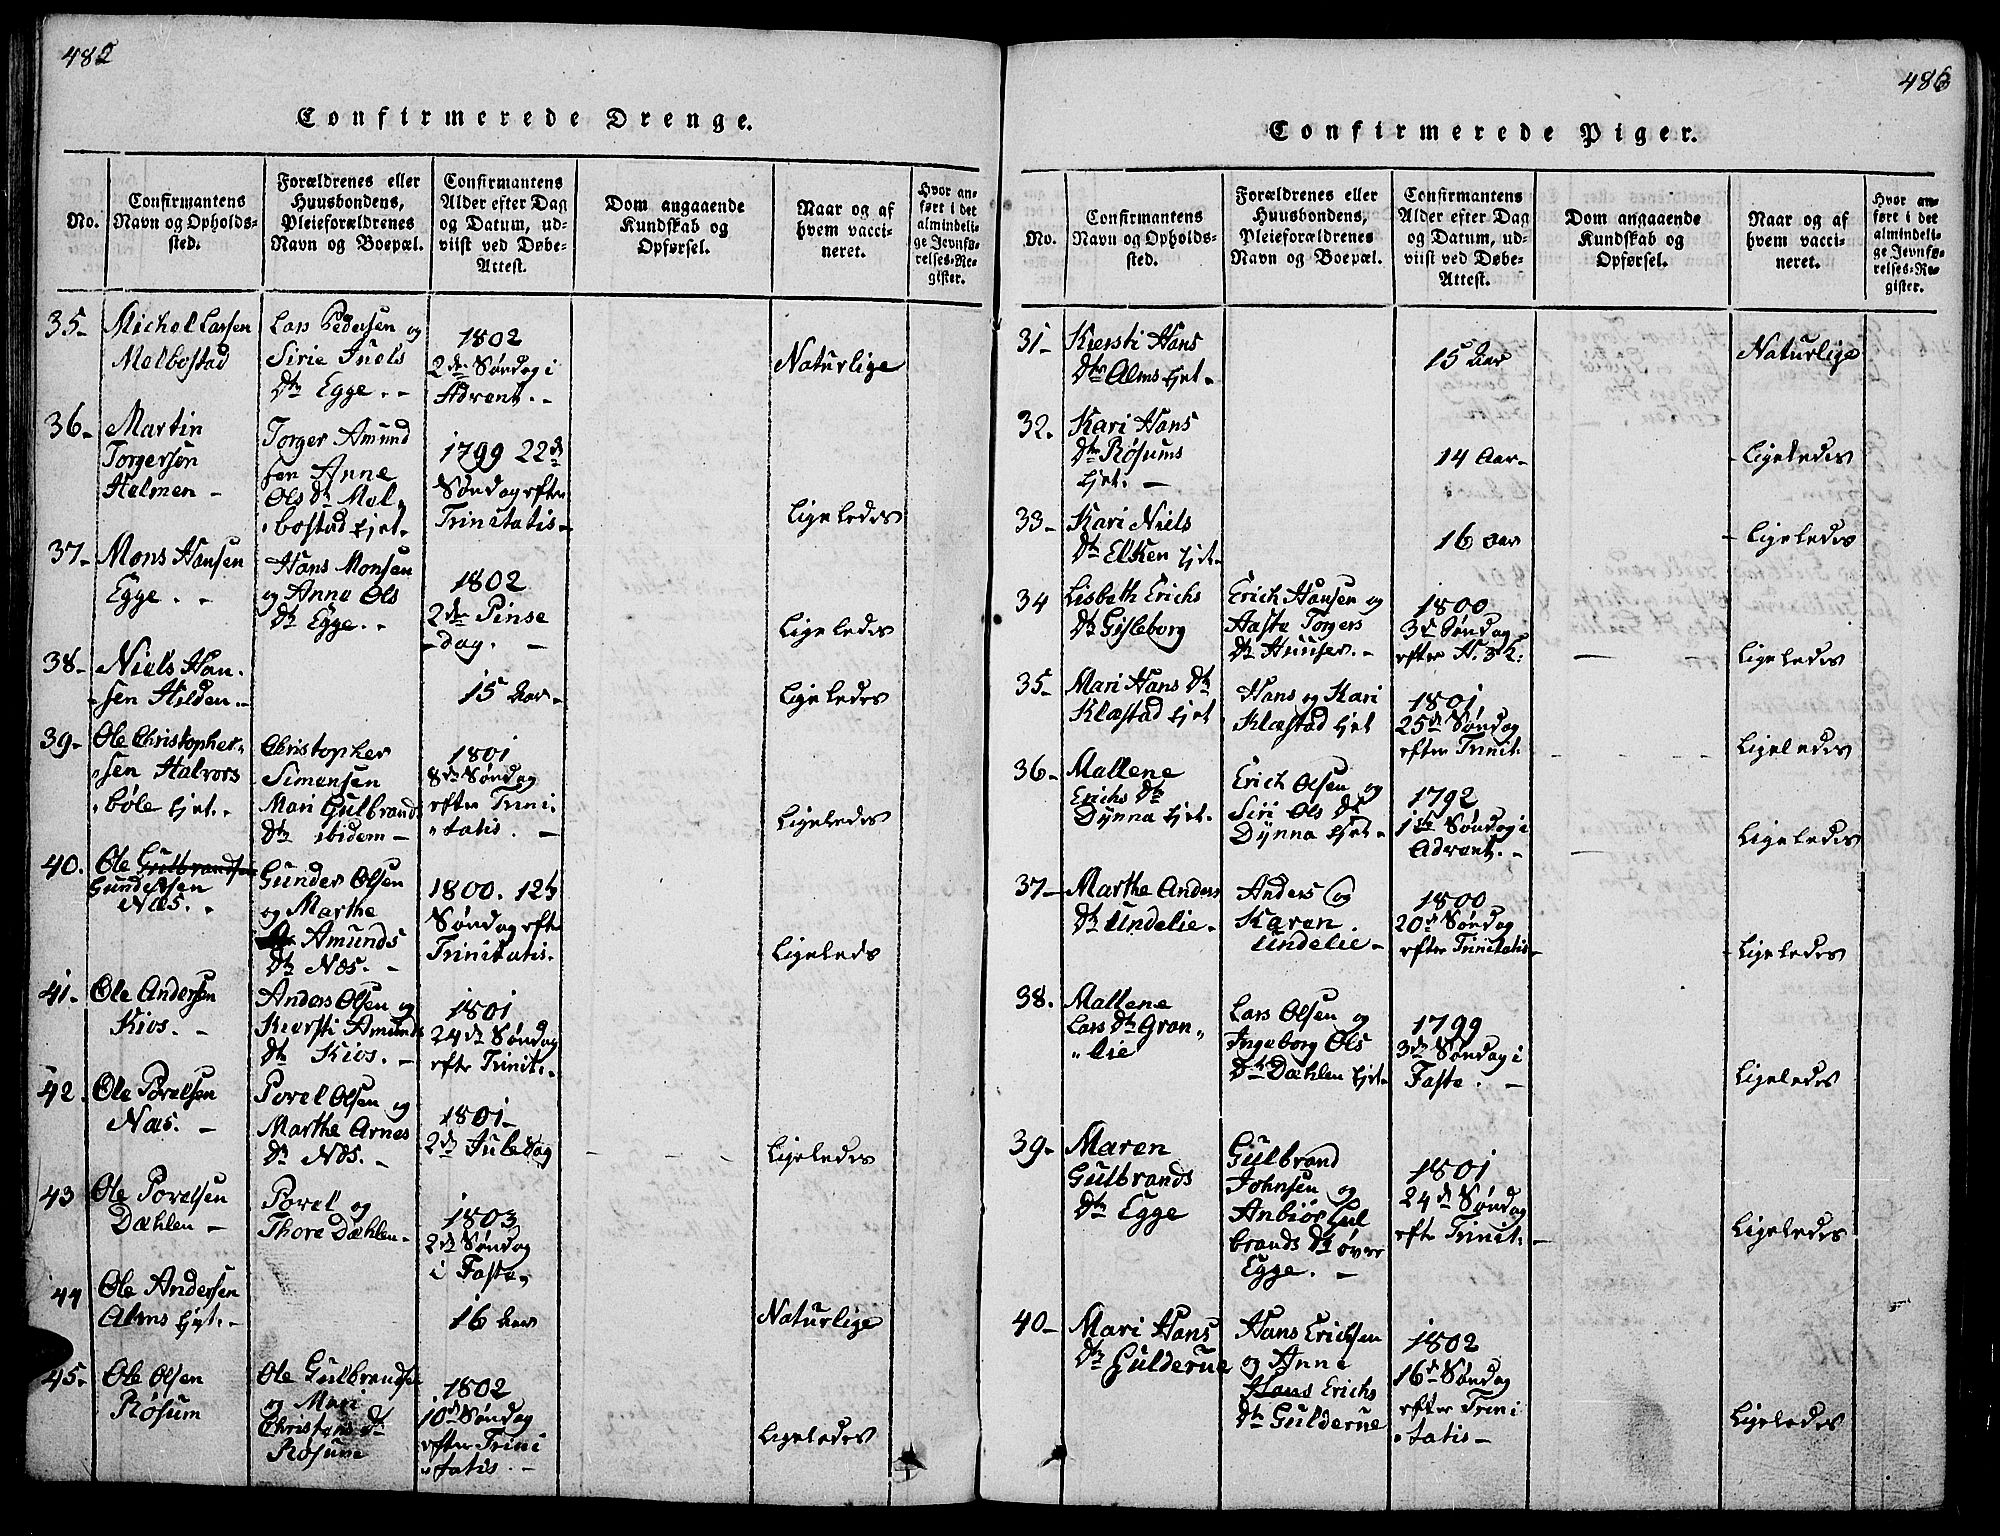 482
Confirmerede Drenge.
No.
Confirmantens
Navn og Opholds-
sted.
Forældrenes eller
Huusbondens,
Pleieforældrenes
Navn og Boepæl.
Confirmantens
Alder efter Dag
og Datum, ud-
viist ved Døbe-
Attest.
Dom angaaende
Kundskab og
Opførsel.
Naar og af
hvem vacci-
neret.
Hvor an-
ført i det
almindeli-
ge Jevnfø-
relses-Re-
gister.
35-
Michel Larsen
Melbostad
Lars Pedersen og
Sirie Juels
Dtr Egge. -
1802
2den Søndag i
Advent. -
Naturlige
36-
Martin
Torgersøn
Helmen -
Torger Amund
sen Anne
Ols Dtr Mel-
bostad Ejet.
1799 22de
Søndag efter
Trinitatis-
Ligeledes
37-
Mons Hansen
Egge. -
Hans Monsen
og Anne Ols
Dtr Egge. -
1802
2den Pinse
-dag. -
Ligeledes
38-
Niels Han-
sen Hilden. -
15 Aar-
Ligeledes
39-
Ole Christopher-
sen Halvors
bøle Ejet. -
Christopher
Simensen
Mari Gulbrands
Dtr ibidem -
1801
8de Søndag
efter Trini-
tatis. -
Ligeledes
40.
Ole Gulbrandsen
Gundersen
Næs. -
Gunder Olsen
og Marthe
Amunds
Dtr Næs. -
1800. 12te
Søndag efter
Trinitatis.
Ligeleds
41-
Ole Andersen
Kios. -
Anders Olsen og
Kiersti Amunds
Dtr Kios. -
1801
24de Søndag
efter Trinit. -
42.
Ole Povelsen
Næs. -
Povel Olsen og
Marthe Arnes
Dtr Næs. -
1801-
2den Juledag
Ligeledes
43
Ole Povelsen
Dæhlen -
Povel og
Thore Dæhlen-
1803
2den Søndag
i Faste,
44
Ole Andersen
Alms Ejet. -
16 Aar
Naturlige
45-
Ole Olsen
Røsum
Ole Gulbrandsen
og Mari
Christens Dtr
Røsum
1802
10de Søndag
efter Trini
tatis. -
Ligeledes
486
Confirmerede Piger.
No.
Confirmantens
Navn og Opholds-
sted.
Forældrenes eller
Huusbondens,
Pleieforældrenes
Navn og Boepæl.
Confirmantens
Alder efter Dag
og Datum, ud-
viist ved Døbe-
Attest.
Dom angaaende
Kundskab og
Opførsel.
Naar og af
hvem vacci-
neret.
Hvor an-
ført i det
almindeli-
ge Jevnfø-
relses-Re-
gister.
31-
Kiersti Hans
Dtr Alms Ejet. -
15 Aar
Naturlige
32.
Kari Hans
Dtr Røsums
Ejet. -
14 Aar-
Ligeledes
33-
Kari Niels
Dtr Elken Ejet-
16 Aar
Ligeledes
34
Lisbeth Erichs
Dtr Gisleborg
Erich Hansen og
Aaste Torgers
Dtr Huuser. -
1800
3de Søndag
efter H. 3 K:
Ligeledes
35-
Mari Hans Dtr
Klæstad Ejet
Hans og Kari
Klæstad Ejet
1801
25de Søndag
efter Trinit.
Ligeledes
36-
Mallene
Erichs Dtr
Dynna Ejet.
Erich Olsen og
Siri Ols Dtr
Dynna Ejet-
1792
1ste Søndag i
Advent. -
Ligeledes
37-
Marthe Anders
Dtr Undelie.
Anders og
Karen
Undelie-
1800
20de Søndag
efter Trinitatis-
Ligeledes
38.
Mallene
Lars Dtr Gran-
lie
Lars Olsen og
Ingeborg Ols
Dtr Dæhlen Ejet-
1799
3de Søndag i
Faste. -
Ligeledes
39-
Maren
Gulbrands
Dtr Egge
Gulbrand
Johnsen og
Anbiør Gul
brands Dtr øvre
Egge. -
1801
24de Søndag
efter Trinit. -
Ligeledes
40-
Mari Hans
Dtr Gulderue
Hans Erichsen
og Anne
Hans Erichs
Dtr Gulderue
1802
16de Søndag
efter Trini
tatis-
Ligeledes